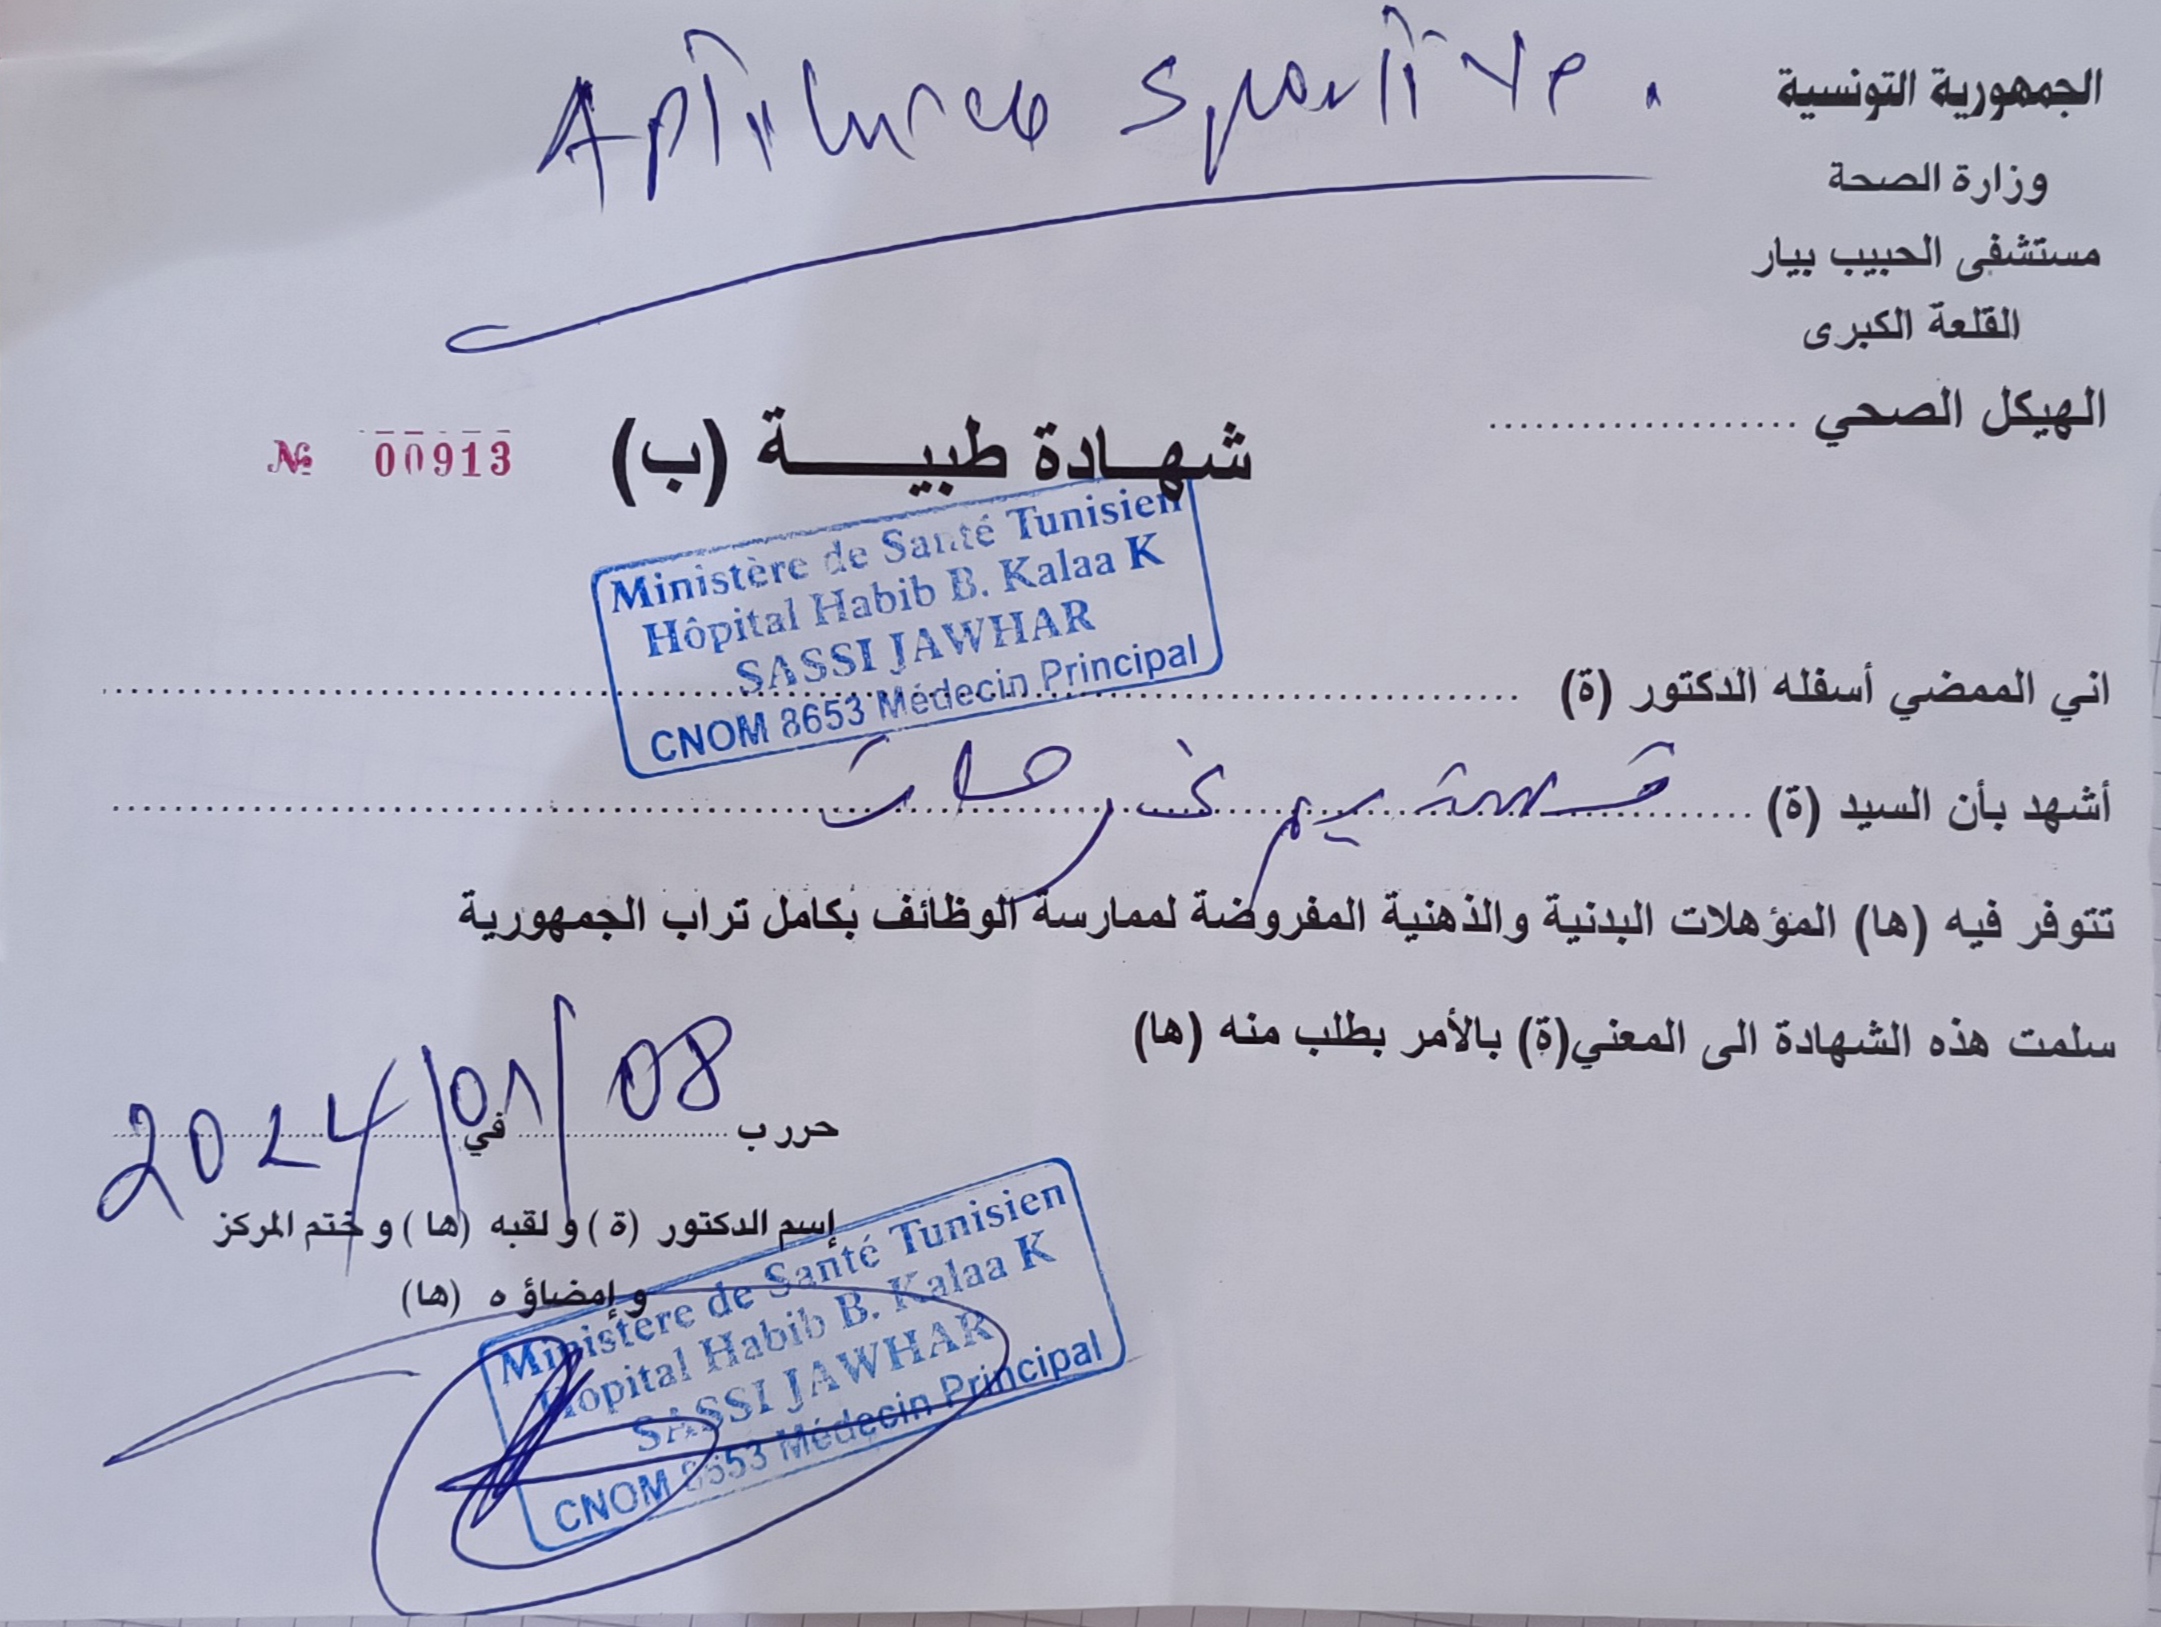 Aptitude sportive.
الجمهورية التونسية
وزارة الصحة
مستشفى الحبيب بيار
القلعة الكبرى
الهيكل الصحي ....................
شهادة طبية (ب)
№ 00913
Ministère de Santé Tunisien
Hôpital Habib B. Kalaa K
SASSI JAWHAR
CNOM 8653 Médecin Principal
اني الممضي أسفله الدكتور (ة)
أشهد بأن السيد (ة) فرحات
تتوفر فيه (ها) المؤهلات البدنية والذهنية المفروضة لممارسة الوظائف بكامل تراب الجمهورية
سلمت هذه الشهادة الى المعني(ة) بالأمر بطلب منه (ها)
حرر ب 08/01/2024 في
إسم الدكتور (ة) و لقبه (ها) و ختم المركز
و إمضاؤ ه (ها)
Ministère de Santé Tunisien
Hôpital Habib B. Kalaa K
SASSI JAWHAR
CNOM 8653 Médecin Principal